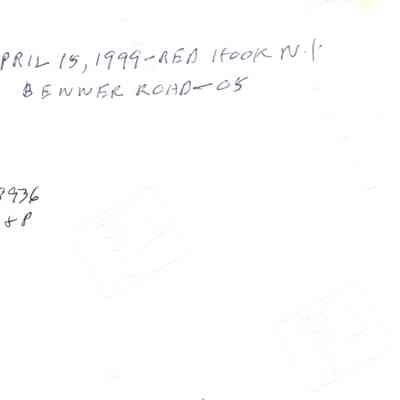 PRIL 15, 1999-RED HOOK N.Y.
BENNER ROAD-05
8936
& P